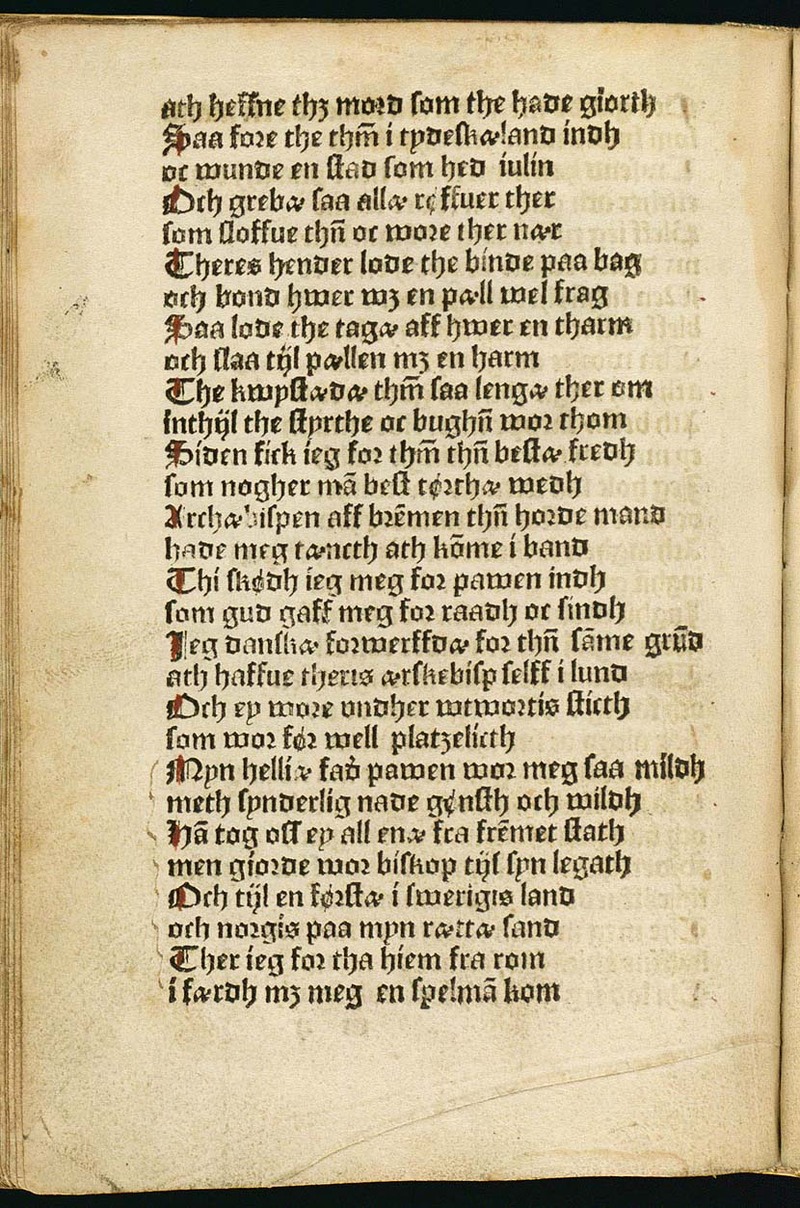 ath heffne thꝫ mord som the hade giorth
Saa fore the thm̄ i tydeskæland indh
oc wunde en stad som hed iulin
Och grebæ saa allæ røffuer ther
som sloffue thn̄ oc wore ther nær
Theres hender lode the binde paa bag
och bond hwer wꝫ en pæll wel frag
Saa lode the tagæ aff hwer en tharm
och slaa tijl pællen mꝫ en harm
The kwpstædæ thm̄ saa lengæ ther om
inthijl the styrthe oc bughn̄ wor thom
Siden fick ieg for thm̄ thn̄ bestæ fredh
som nogher mā best tørthæ wedh
Archæbispen aff brēmen thn̄ horde mand
hade meg tæncth ath kōme i band
Thi skødh ieg meg for pawen indh
som gud gaff meg for raadh oc sindh
Jeg danskæ forwerffdæ for thn̄ sāme grūd
ath haffue theris ærskebisp selff i lund
Och ey wore vndher wtwortis sticth
som wor før well platzelicth
Myn helliæ fadꝰ pawen wor meg saa mildh
meth synderlig nade gønsth och wildh
Hā tog oss ey all enæ fra frēmet stath
men giorde wor biskop tijl syn legath
Och tijl en førstæ i swerigis land
och norgis paa myn rættæ sand
Ther ieg for tha hiem fra rom
i færdh mꝫ meg en spelmā kom